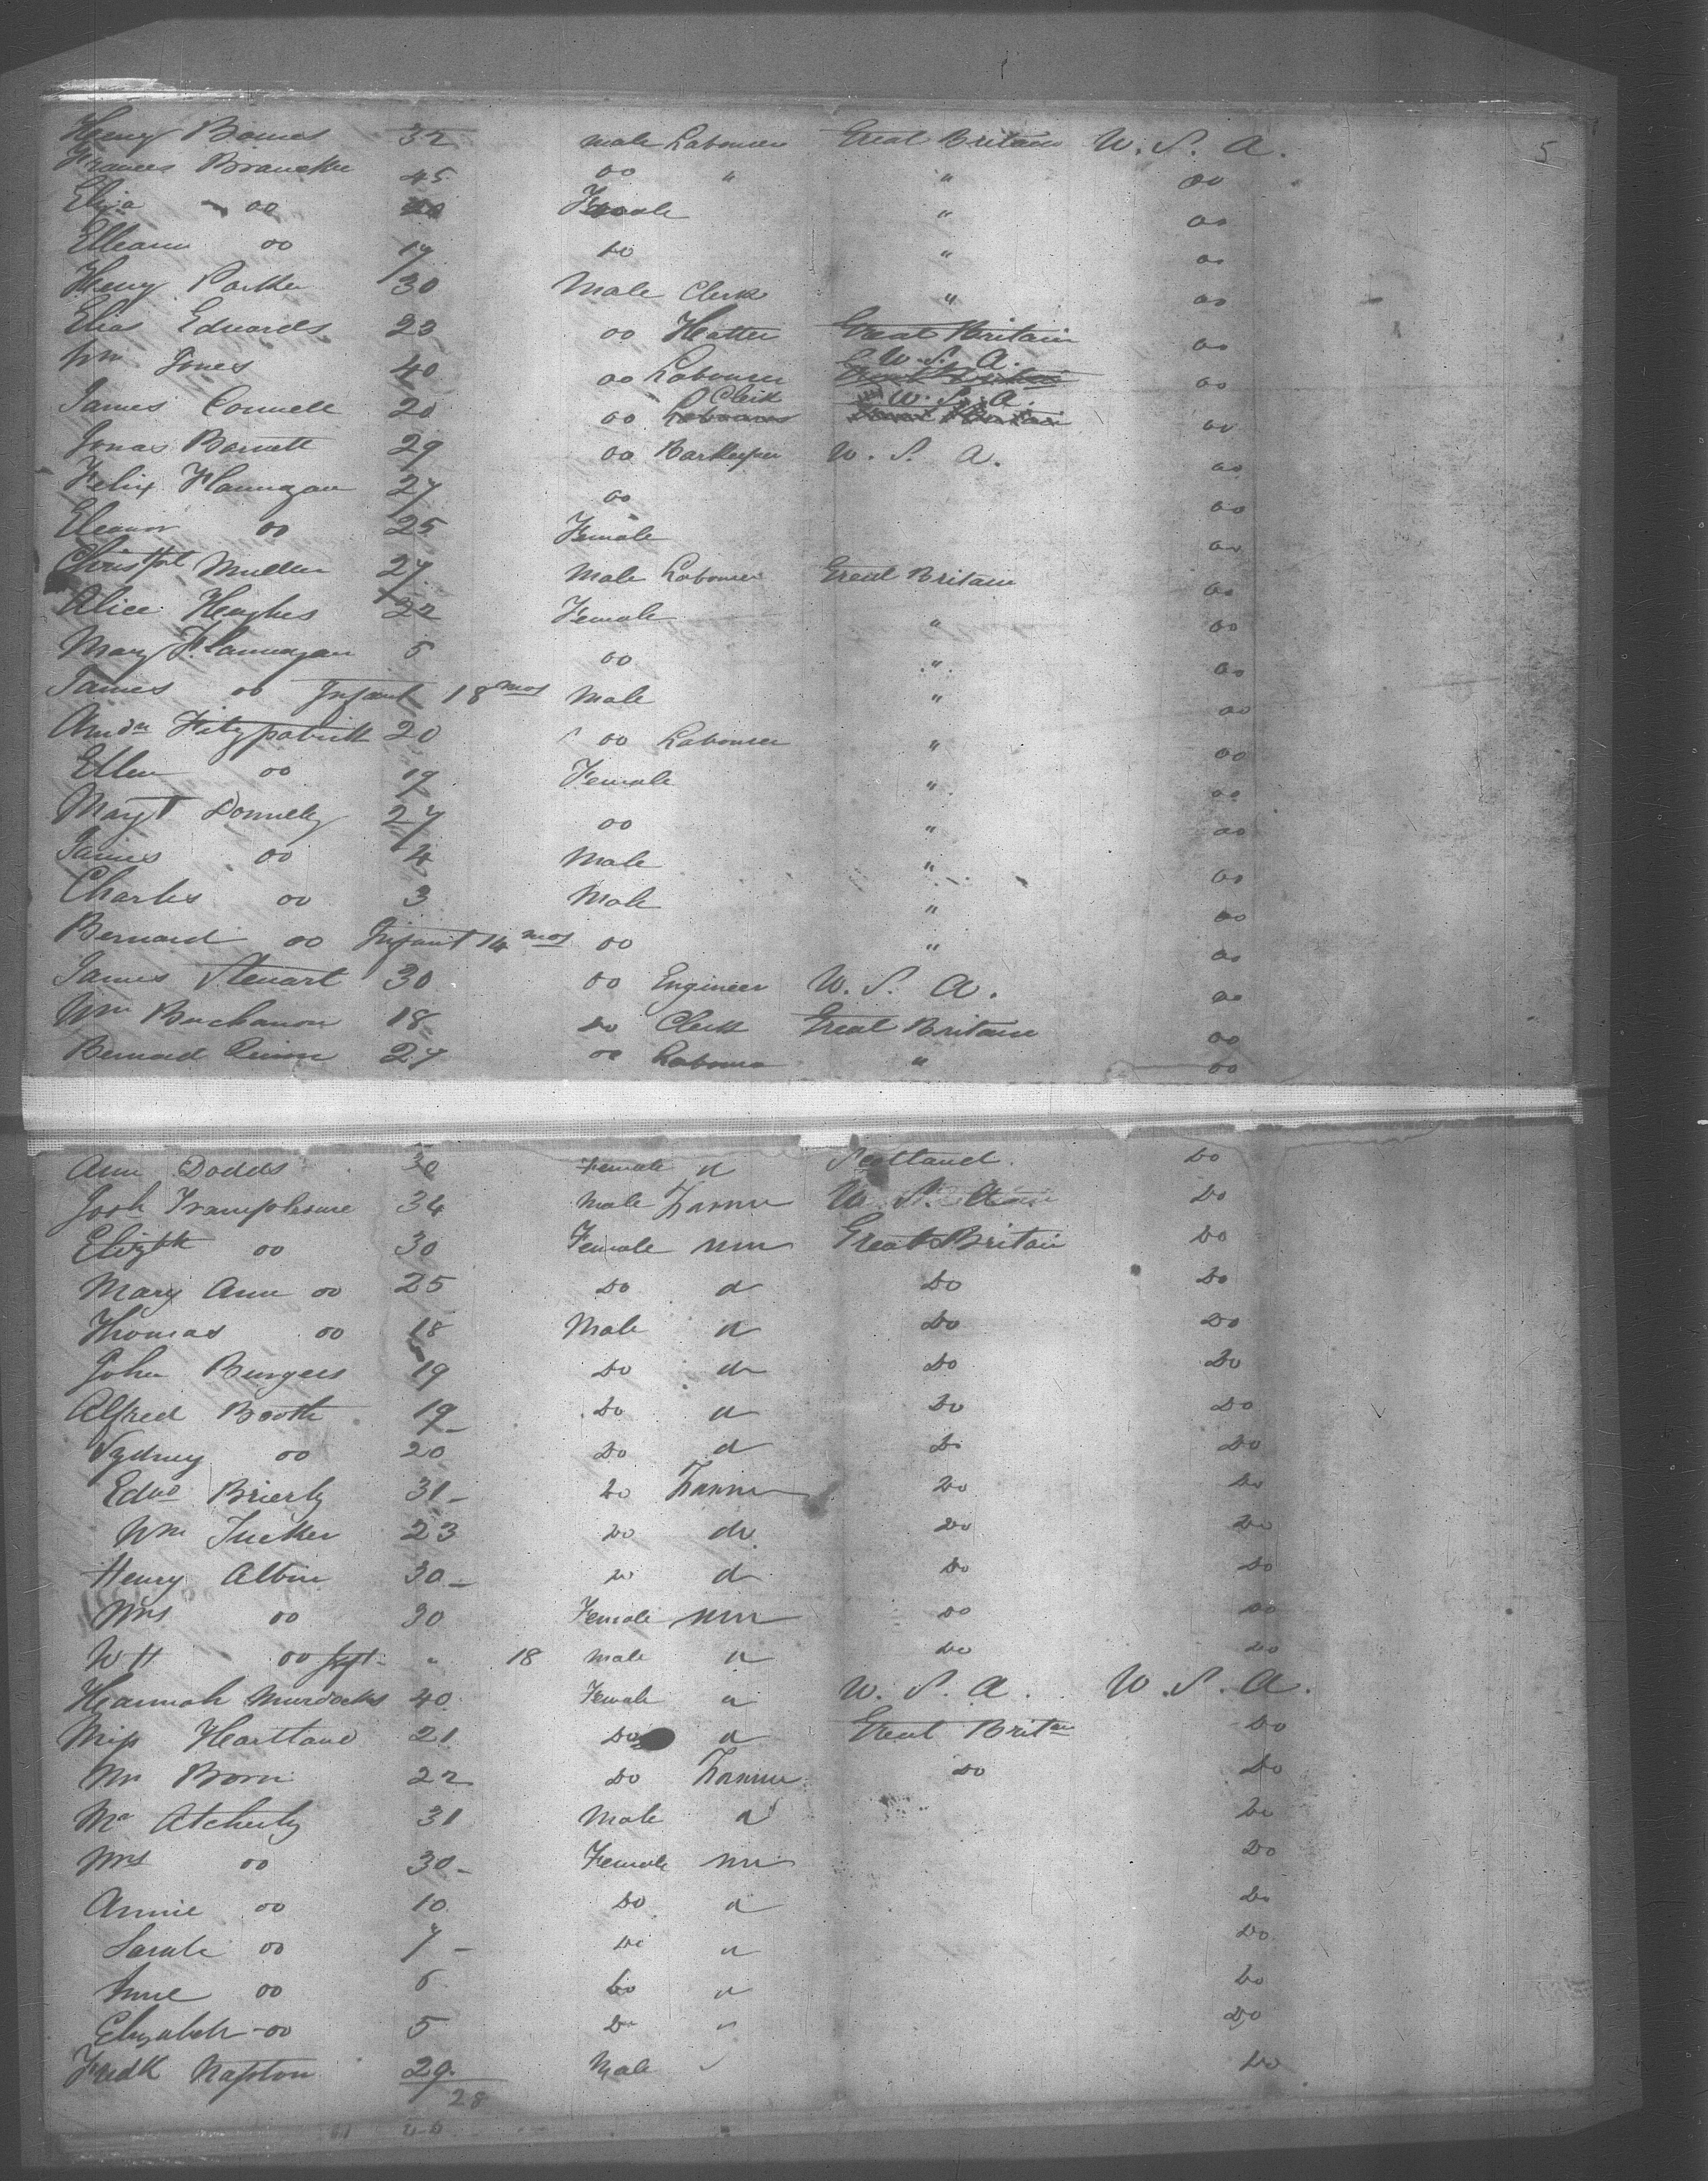 5
Henry Barnes 32 male Labourer Great Britain U. S. A.
Frances 45 do " " do
Eliza do Female " do
Elleann do 17 do " do
Henry Parker 30 Male Clerk " do
Elias Edwards 23 do Hatter Great Britain do
Wm Jones 40 do Labourer U. S. A. do
James Connell 20 do Clerk U. S. A. do
Jonas Barnett 29 do Barkeeper U. S. A. do
Felix Flannagan 27 do do
Eleanor do 25 Female do
Christ Mullen 27 Male Labourer Great Britain do
Alice Hughes 22 Female " do
Mary Flannagan 5 do " do
James do Infant 18 mos Male " do
Fitzpatrick 20 do Labourer " do
Ellen do 19 Female " do
Margt Donnelly 27 do " do
James do 4 Male " do
Charles do 3 Male " do
Bernard do Infant 14 mos do " do
James Stewart 30 do Engineer U. S. A. do
Wm Buchanon 18 do Clerk Great Britain do
Bernard Quinn 27 do Labourer " do
Ann Dodds 30 Female " Scotland Do
Josh 34 Male Farmer U. S. A. Do
Elizbth do 30 Female Great Britain Do
Mary Ann do 25 Do Do Do
Thomas do 18 Male Do Do
John Burgess 19 Do Do Do
Alfred Booth 19 Do Do Do
Sydney do 20 Do Do Do
Edwd Brierly 31 Do Farmer Do Do
Wm Tucker 23 Do do Do Do
Henry Albin 30 Do Do Do
Mrs do 30 Female Do Do
W H do Inft " 18 Male Do Do
Hannah Murdocks 40 Female U. S. A. U. S. A.
Miss Heartland 21 Do Great Britn Do
Born 22 Do Farmer Do Do
Mr Atcherly 31 Male Do
Mrs do 30 Female Do
Annie do 10 Do Do
Sarah do 7 Do Do
do 6 Do Do
Elizabeth do 5 Do Do
Fredk Napton 29 Male Do
28